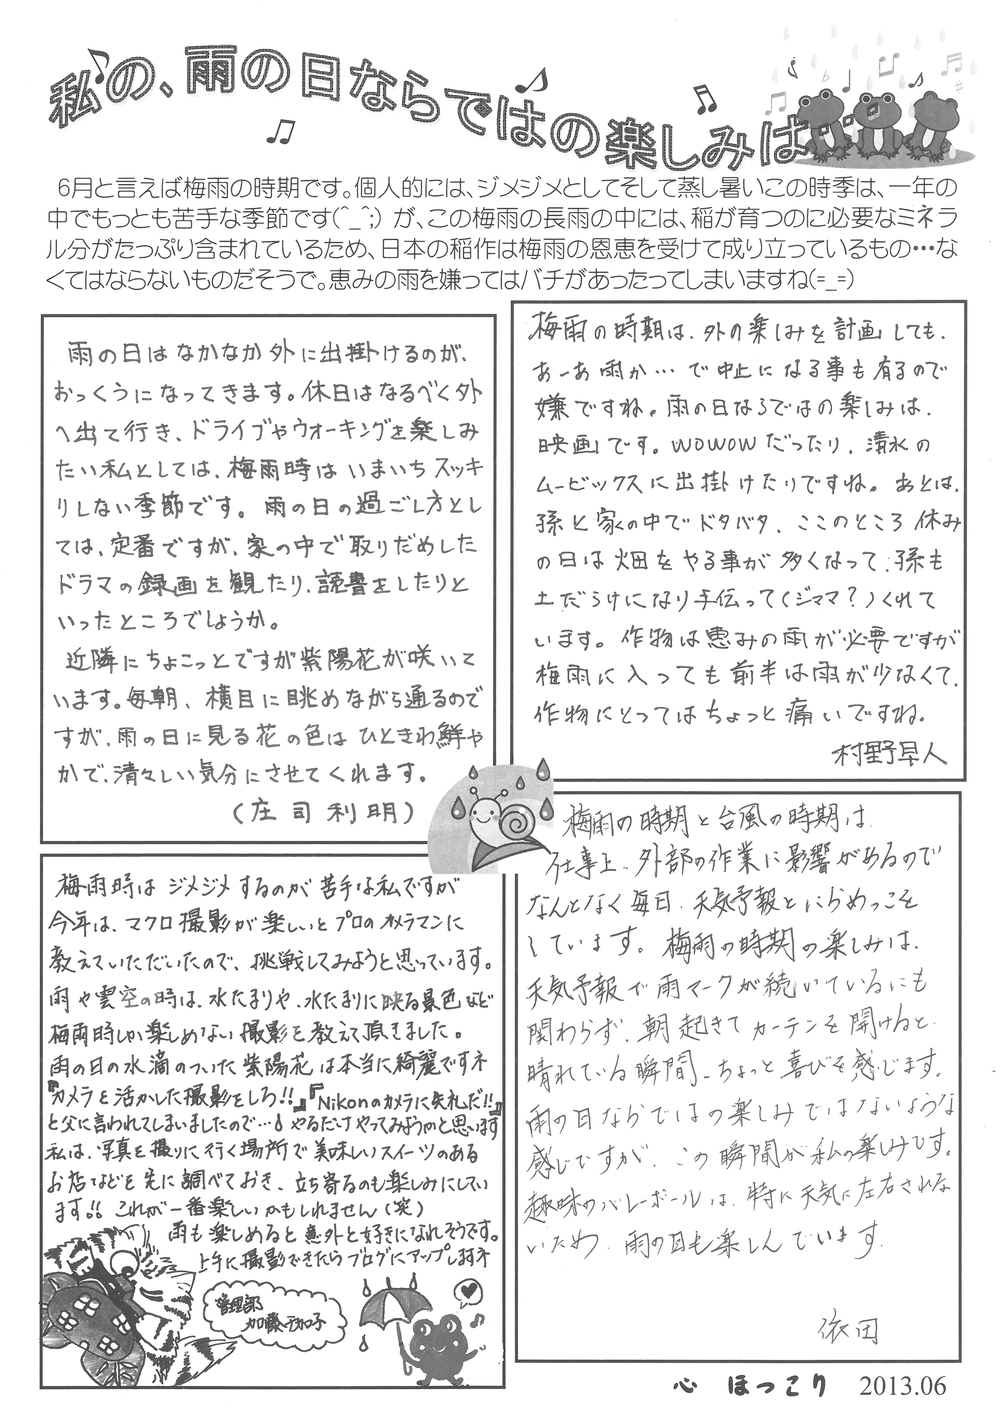 私の、雨の日ならではの楽しみは…
6月と言えば梅雨の時期です。個人的には、ジメジメとしてそして蒸し暑いこの時季は、一年の
中でもっとも苦手な季節です(^_^;) が、この梅雨の長雨の中には、稲が育つのに必要なミネラ
ル分がたっぷり含まれているため、日本の稲作は梅雨の恩恵を受けて成り立っているもの…な
くてはならないものだそうで。恵みの雨を嫌ってはバチがあったってしまいますね(=_=)
雨の日はなかなか外に出掛けるのが、
おっくうになってきます。休日はなるべく外
へ出て行き、ドライブやウォーキングを楽しみ
たい私としては、梅雨時はいまいちスッキ
リしない季節です。雨の日の過ごし方とし
ては、定番ですが、家の中で取りだめした
ドラマの録画を観たり、読書をしたりと
いったところでしょうか。
近隣にちょこっとですが紫陽花が咲いて
います。毎朝、横目に眺めながら通るので
すが、雨の日に見る花の色はひときわ鮮や
かで、清々しい気分にさせてくれます。
(庄司利明)
梅雨の時期は、外の楽しみを計画しても、
あーあ雨か…で中止になる事も有るので
嫌ですね。雨の日ならではの楽しみは、
映画です。WOWOWだったり、清水の
ムービックスに出掛けたりですね。あとは、
孫と家の中でドタバタ、ここのところ休み
の日は畑をやる事が多くなって、孫も
土だらけになり手伝って(ジャマ?)くれて
います。作物は恵みの雨が必要ですが
梅雨に入っても前半は雨が少なくて、
作物にとってはちょっと痛いですね。
村野早人
梅雨時はジメジメするのが苦手な私ですが
今年は、マクロ撮影が楽しいとプロのカメラマンに
教えていただいたので、挑戦してみようと思っています。
雨や雲空の時は、水たまりや、水たまりに映る景色など
梅雨時しか楽しめない撮影を教えて頂きました。
雨の日の水滴のついた紫陽花は本当に綺麗ですネ
『カメラを活かした撮影をしろ!!』『Nikonのカメラに失礼だ!!』
と父に言われてしまいましたので…! やるだけやってみようかと思います
私は、写真を撮りに行く場所で美味しいスイーツのある
お店などを先に調べておき、立ち寄るのも楽しみにしてい
ます!! これが一番楽しいかもしれません(笑)
雨も楽しめると意外と好きになれそうです。
上手に撮影できたらブログにアップしますネ
管理部
加藤
梅雨の時期と台風の時期は
仕事上、外部の作業に影響があるので
なんとなく毎日、天気予報とにらめっこを
しています。梅雨の時期の楽しみは、
天気予報で雨マークが続いているにも
関わらず、朝起きてカーテンを開けると、
晴れている瞬間、ちょっと喜びを感じます。
雨の日ならではの楽しみではないような
感じですが、この瞬間が私の楽しみです。
趣味のバレーボールは、特に天気に左右されな
いため、雨の日も楽しんでいます。
依田
心 ほっこり 2013.06